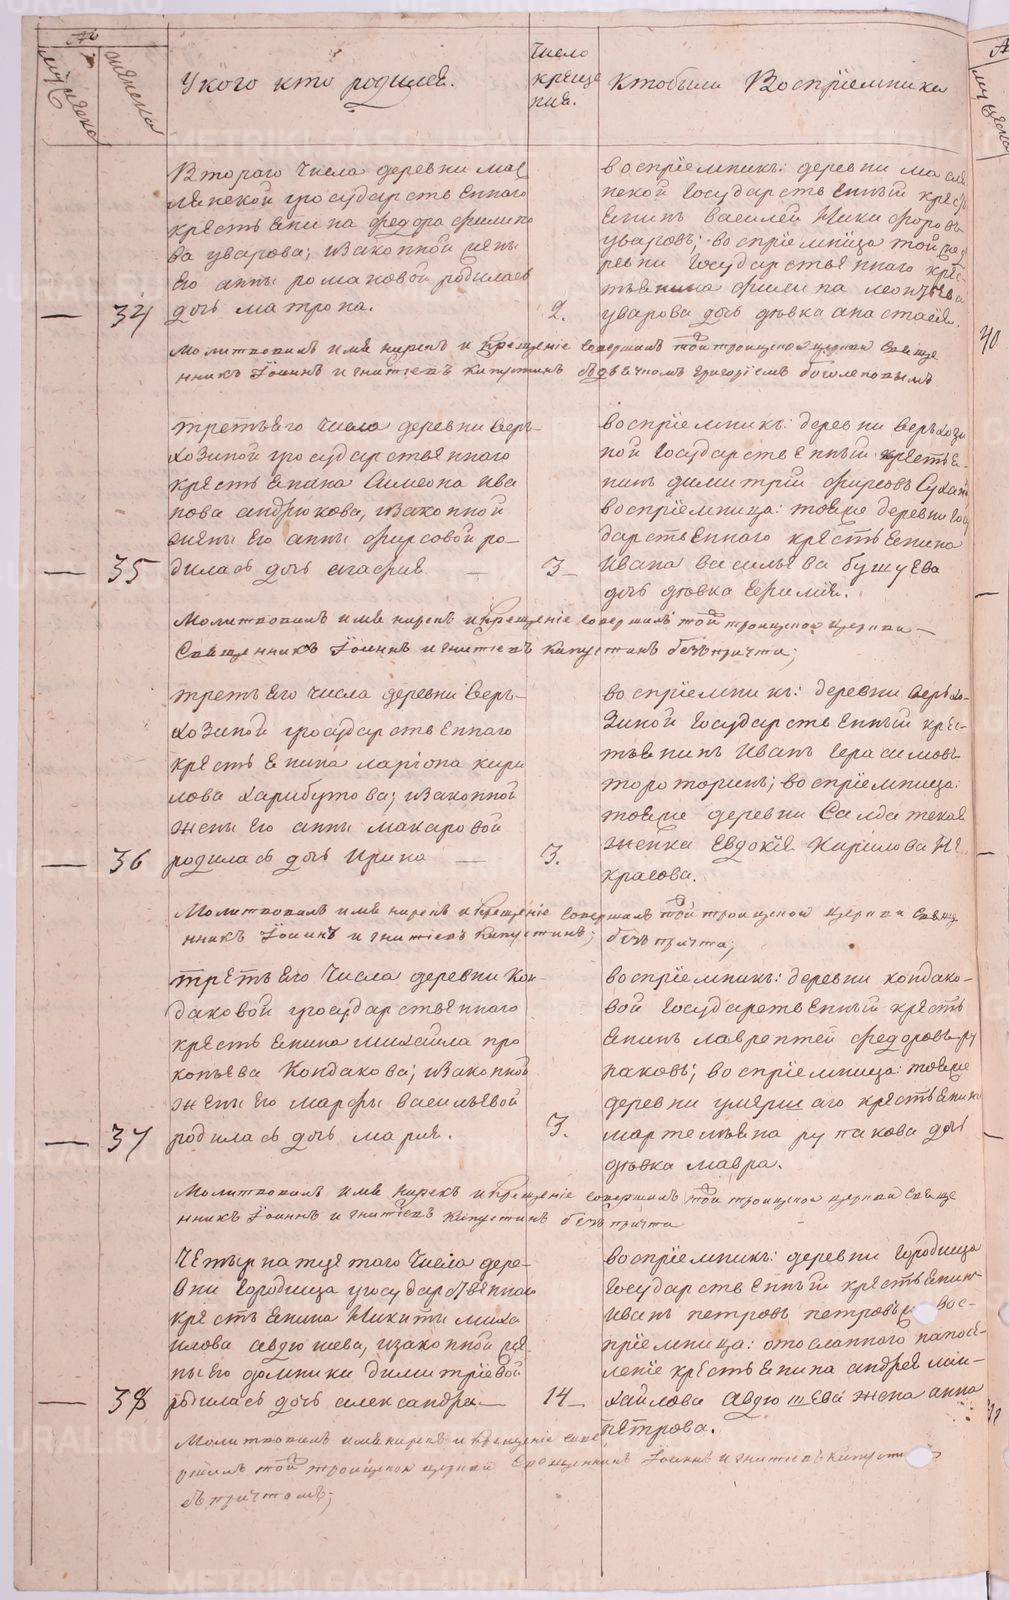 №
мужеска
женска
У кого кто родился.
Число
креще
ния.
Кто были Восприемники
Втораго числа деревни мас
лянской государственнаго
крестьянина федора филипо
ва уварова, и законной жены
Его анны романовой родилась
34
дочь матрона.
2.
восприемникъ: деревни масля
нской государственный кресть
янинъ василей Никифоровъ
уваровъ; восприемница той же де
ревни государственнаго кресть
тьянина филипа леонтьева
уварова дочь девка анастасия.
Молитвовалъ имя нарекъ и крещение совершалъ той троицкой церкви Свяще
нникъ Iоаннъ игнатиевъ Капустинъ съ дьячкомъ григориемъ боголеповымъ
третьяго числа деревни Верх-
хозиной государственнаго
крестьянина Симеона ива
нова андрюкова, и законной
жены Его анны фирсовой ро-
35
дилась дочь агафия
3
восприемникъ: деревни верххози
ной государственный крестья
нинъ димитрий фирсовъ
восприемница: тояже деревни госу
дарственнаго крестьянина
ивана васильева бушуева
дочь девка Ефимия.
Молитвовалъ имя нарекъ и крещение совершалъ той троицкой церкви
Священникъ Iоаннъ игнатиевъ Капустинъ безъ причта;
третьяго числа деревни Верх-
хозиной государственнаго
крестьянина ларiона кири
лова харибутова, и законной
жены его анны макаровой
36
родилась дочь ирина
3.
восприемникъ: деревни верхо-
зиной государственный крес-
тьянинъ иванъ герасимовъ
тороторинъ; восприемница:
тояже деревни Салдатская
женка Евдокия Кирилова Не
красова.
Молитвовалъ имя нарекъ и крещение совершалъ той троицкой церкви Свяще
нникъ Iоаннъ игнатиевъ Капустинъ; безъ причта;
третьяго числа деревни кон
даковой государственнаго
крестьянина михаила про
копьева Кондакова; и законной
жены его марфы васильевой
37
родилась дочь мария.
3.
восприемникъ: деревни кондако-
вой государственный кресть
янинъ лаврентей федоровъ ру
наковъ; восприемница: тояже
деревни умершаго крестьянина
мартемьяна рунакова дочь
девка мавра.
Молитвовалъ имя нарекъ и крещение совершалъ той троицкой церкви Свяще
нникъ Iоаннъ игнатиевъ Капустинъ безъ причта
Четырнатцятаго числа дере-
вни городища государственнаго
крестьянина Никиты миха
илова авдюшева, и законной же-
ны его домники димитриевой
38
родилась дочь александра
14
восприемникъ: деревни городища
государственный крестьянинъ
иванъ петровъ петровыхъ вос-
приемница: отосланного на посе-
ление крестьянина андрея ми-
хайлова Авдюшева жена анна
петрова.
Молитвовалъ имя нарекъ и крещение сове
ршалъ той троицкой церкви Священникъ Iоаннъ игнатиевъ Капустинъ
съ причтомъ;
40
METRIKI.GASO-URAL.RU